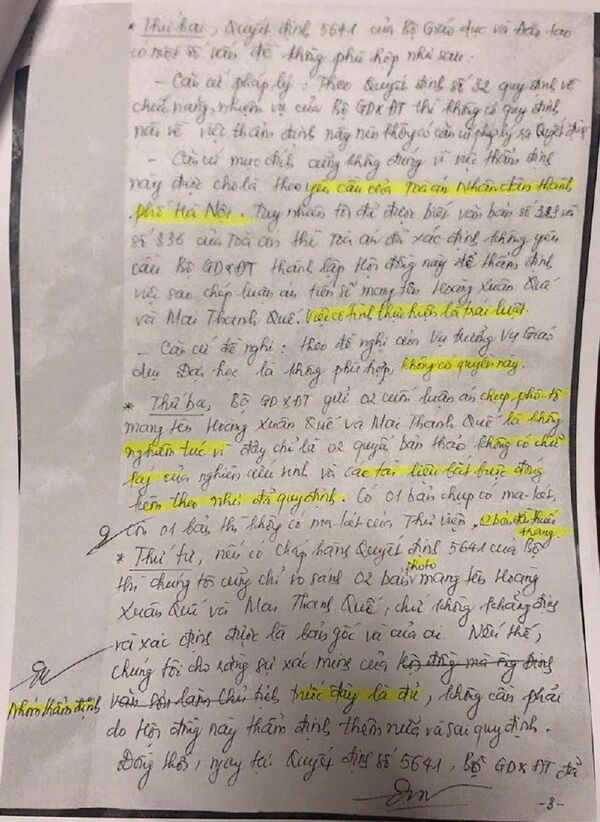 * Thứ hai, Quyết định 5641 của Bộ Giáo dục và Đào tạo
có một số vấn đề không phù hợp như sau:
- Căn cứ pháp lý: Theo Quyết định số 32 quy định về
chức năng, nhiệm vụ của Bộ GD&ĐT thì không có quy định
nào về việc thẩm định này nên không có căn cứ pháp lý ra Quyết định
- Căn cứ mục đích cũng không đúng vì việc thẩm định
này được cho là theo yêu cầu của Toà án Nhân dân thành
phố Hà Nội. Tuy nhiên tôi đã được biết văn bản số 323 và
số 336 của Toà án thì Toà án đã xác định không yêu
cầu Bộ GD&ĐT thành lập Hội đồng này để thẩm định
việc sao chép luận án tiến sĩ mang tên Hoàng Xuân Quế
và Mai Thanh Quế. Việc cố tình thực hiện là trái luật.
- Căn cứ đề nghị: theo đề nghị của Vụ trưởng Vụ Giáo
dục Đại học là không phù hợp, không có quyền này.
* Thứ ba, Bộ GD&ĐT gửi 02 cuốn luận án chụp phô-tô
mang tên Hoàng Xuân Quế và Mai Thanh Quế là không
nghiêm túc vì đây chỉ là 02 quyển bản thảo không có chữ
ký của nghiên cứu sinh và các tài liệu bắt buộc đóng
kèm theo như đã quy định. Có 01 bản chụp có ma-két,
còn 01 bản thì không có ma-két của Thư viện, 2 bản đều thiếu
trang
* Thứ tư, nếu có chấp hành Quyết định 5641 của Bộ
thì chúng tôi cũng chỉ so sánh 02 bản photo mang tên Hoàng
Xuân Quế và Mai Thanh Quế, chứ không khẳng định
và xác định được là bản gốc và của ai. Nếu thế,
chúng tôi cho rằng sự xác minh của hội đồng mà ông Đinh
Nhóm thẩm định văn Sơn làm Chủ tịch trước đây là đủ, không cần phải
do Hội đồng này thẩm định thêm nữa và sai quy định.
Đồng thời, ngay tại Quyết định số 5641, Bộ GD&ĐT đã
-3-